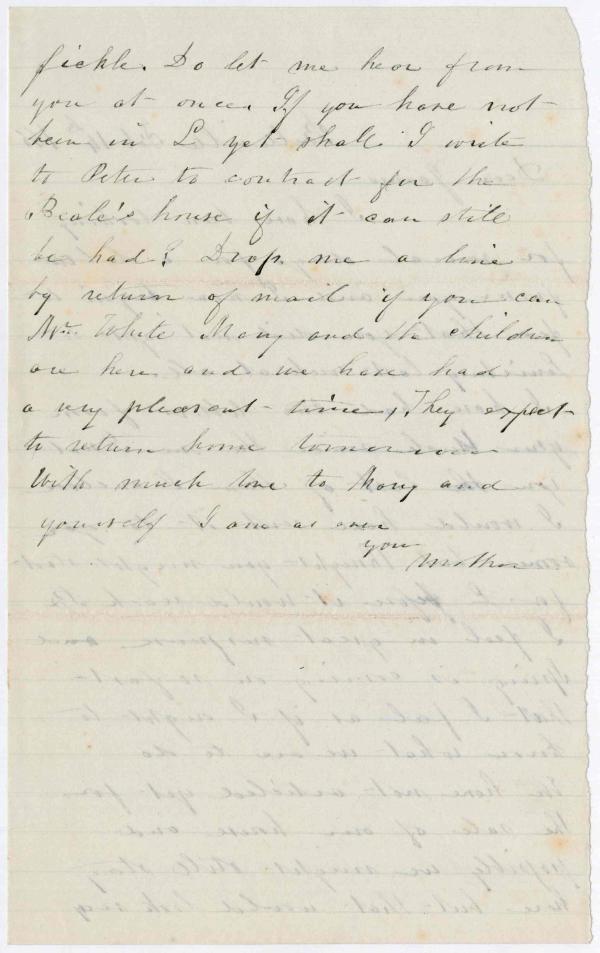 fickle. Do let me hear from
you at once. If you have not
been in L yet shall I write
to Peter to contract for the
Beale's house if it can still
be had? Drop me a line
by return of mail if you can
Mr. White Mary and the children
are here and we have had
a very pleasant time, They expect
to return home tomorrow
With much love to Mary and
yourself I am as ever
your Mother